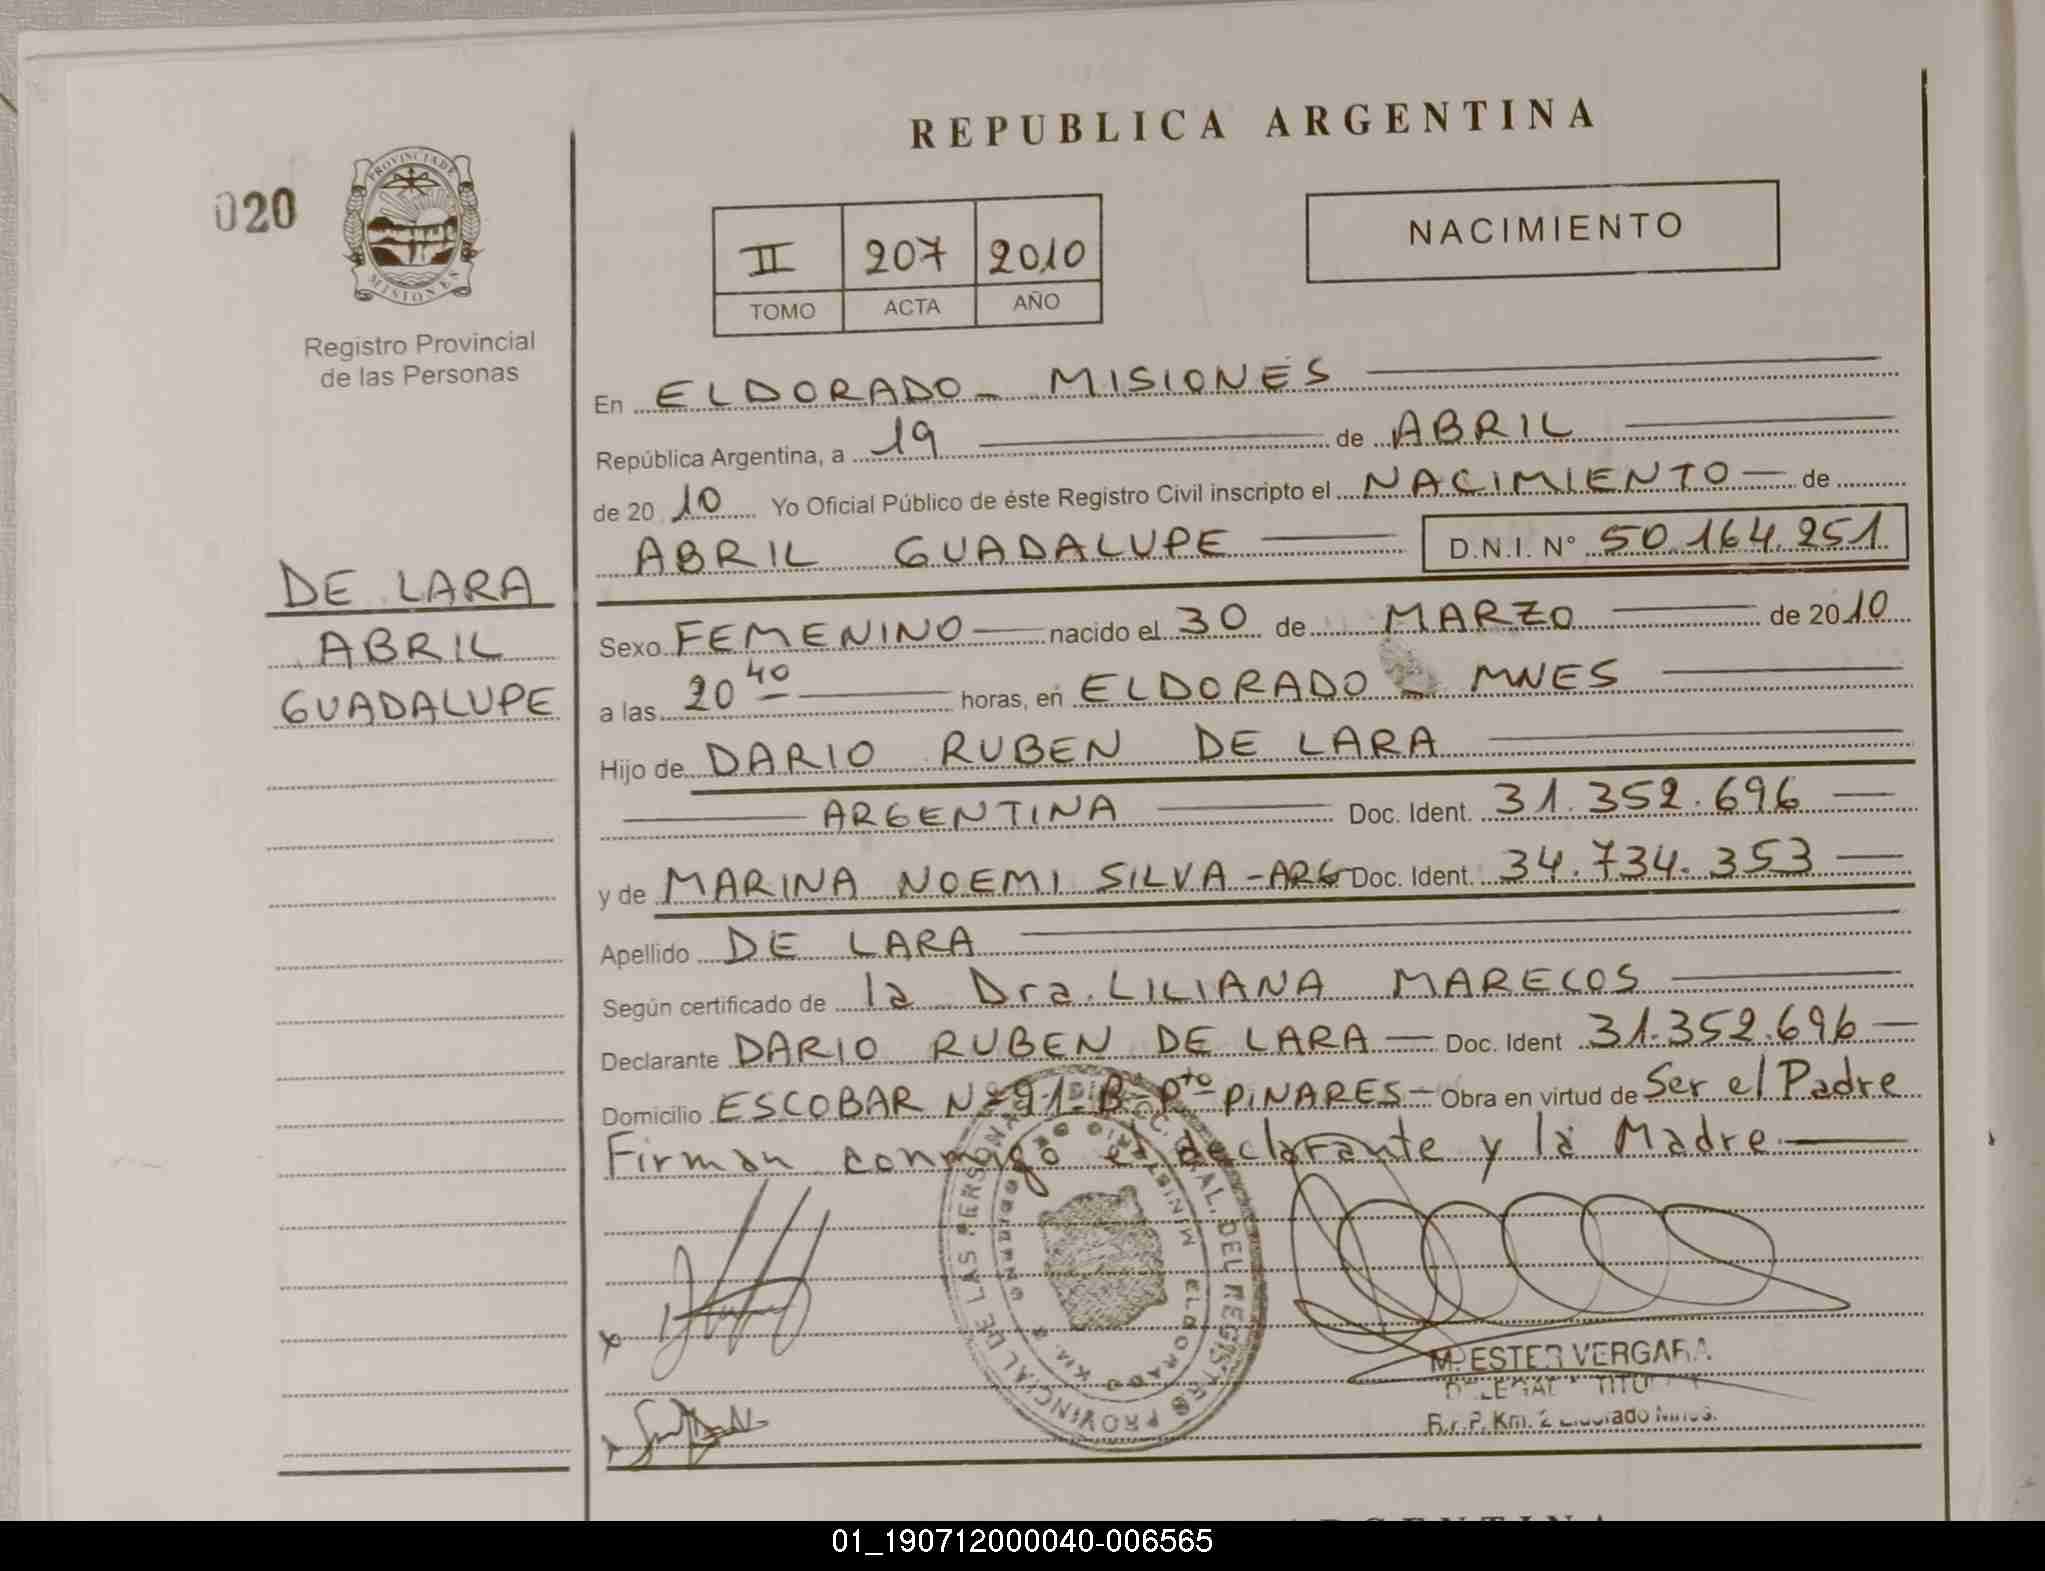 REPUBLICA ARGENTINA
020
PROVINCIA DE
MISIONES
Registro Provincial
de las Personas
II 207 2010
TOMO ACTA AÑO
NACIMIENTO
DE LARA
ABRIL
GUADALUPE
En ELDORADO - MISIONES
República Argentina, a 19 de ABRIL
de 2010 Yo Oficial Público de éste Registro Civil inscripto el NACIMIENTO de
ABRIL GUADALUPE D.N.I. Nº 50.164.251
Sexo FEMENINO nacido el 30 de MARZO de 2010
a las 20 40 horas, en ELDORADO - MNES
Hijo de DARIO RUBEN DE LARA
ARGENTINA Doc. Ident. 31.352.696
y de MARINA NOEMI SILVA - ARG Doc. Ident. 34.734.353
Apellido DE LARA
Según certificado de la Dra. LILIANA MARECOS
Declarante DARIO RUBEN DE LARA Doc. Ident 31.352.696
Domicilio ESCOBAR Nº 91- Bº Pto PINARES - Obra en virtud de Ser el Padre
Firman conmigo el declarante y la Madre
DEL REGISTRO PROVINCIAL DE LAS
ELDORADO
KM.
Mª ESTER VERGARA
R.P.P. Km. 2 Eldorado Mnes.
01_190712000040-006565